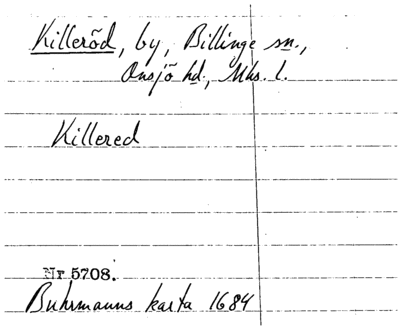 Killeröd, by, Billinge sn.,
Onsjö hd., Mhs. l.
Killered
Nr 5708.
Buhrmanns karta 1684